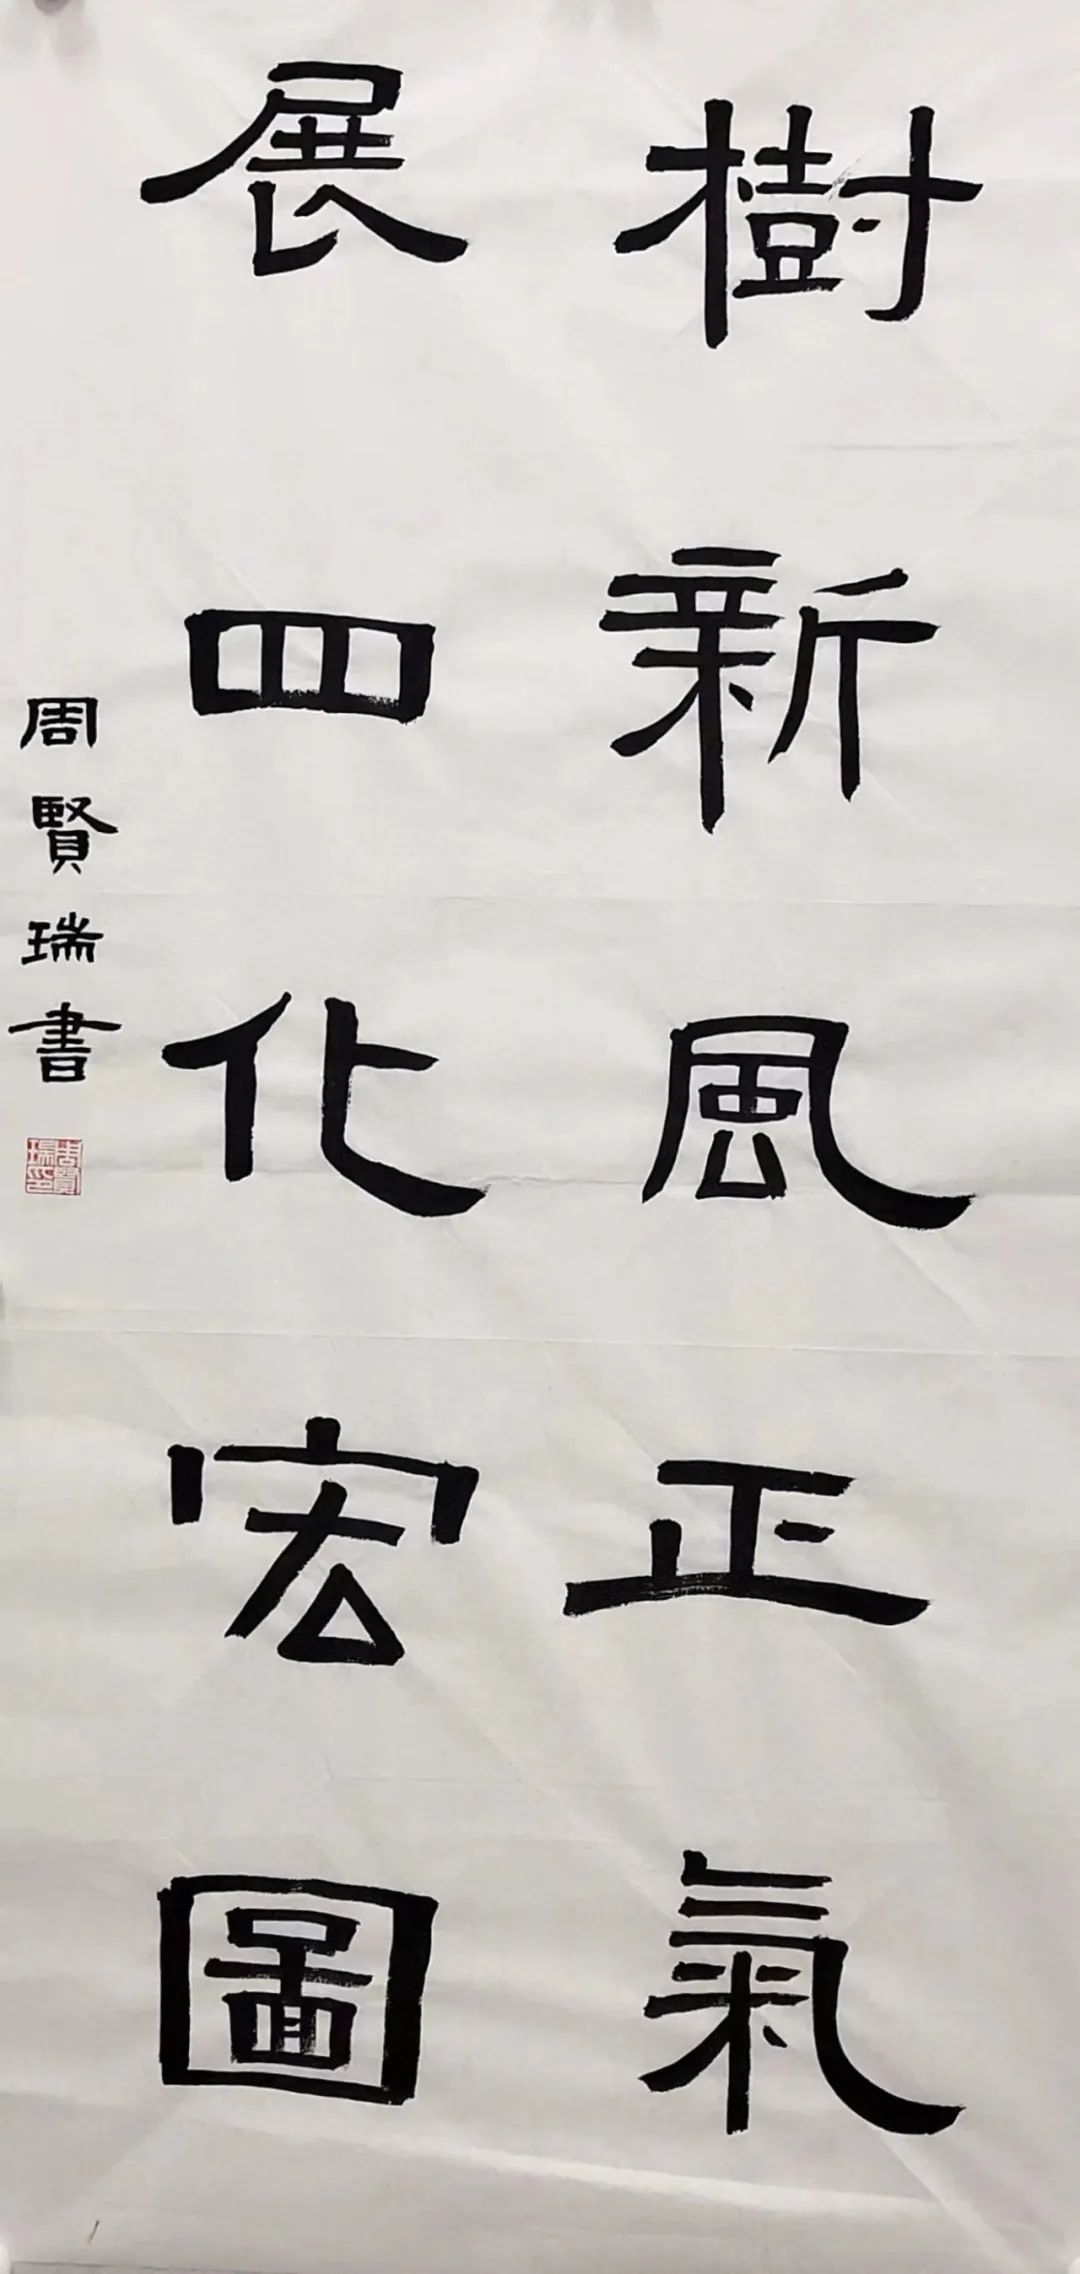 樹新風正氣
展四化宏圖
周賢瑞書
周賢瑞印